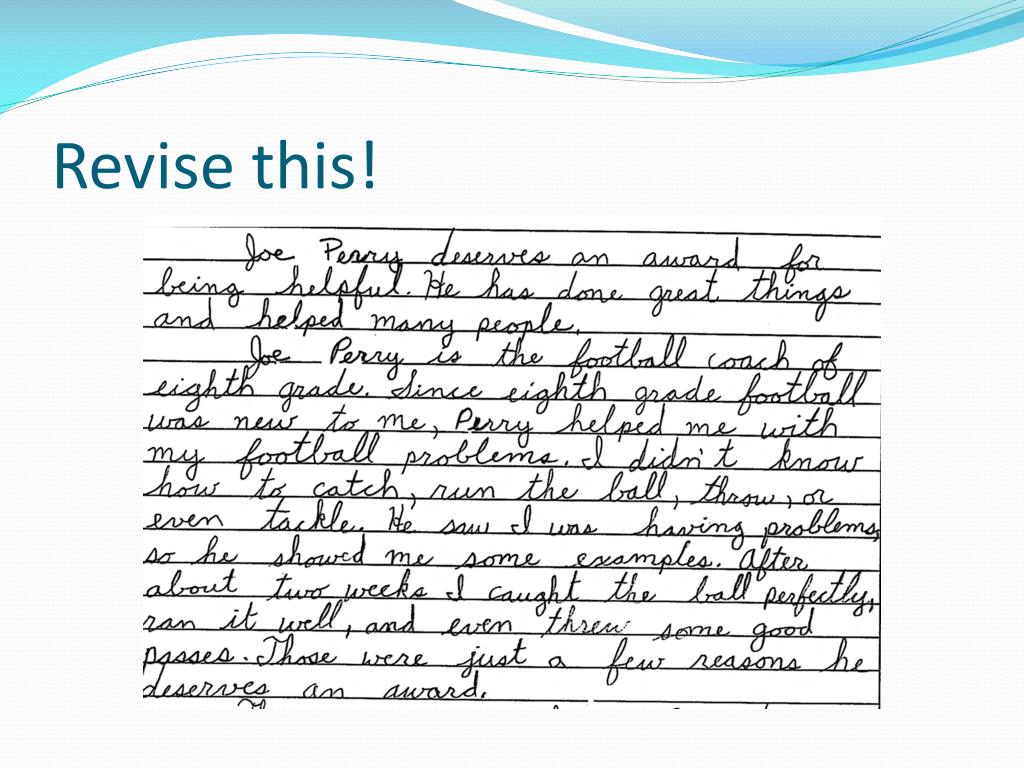 Revise this!
Joe Perry deserves an award for
being helpful. He has done great things
and helped many people.
Joe Perry is the football coach of
eighth grade. Since eighth grade football
was new to me, Perry helped me with
my football problems. I didn't know
how to catch, run the ball, throw, or
even tackle. He saw I was having problems,
so he showed me some examples. After
about two weeks I caught the ball perfectly,
ran it well, and even threw some good
passes. Those were just a few reasons he
deserves an award.